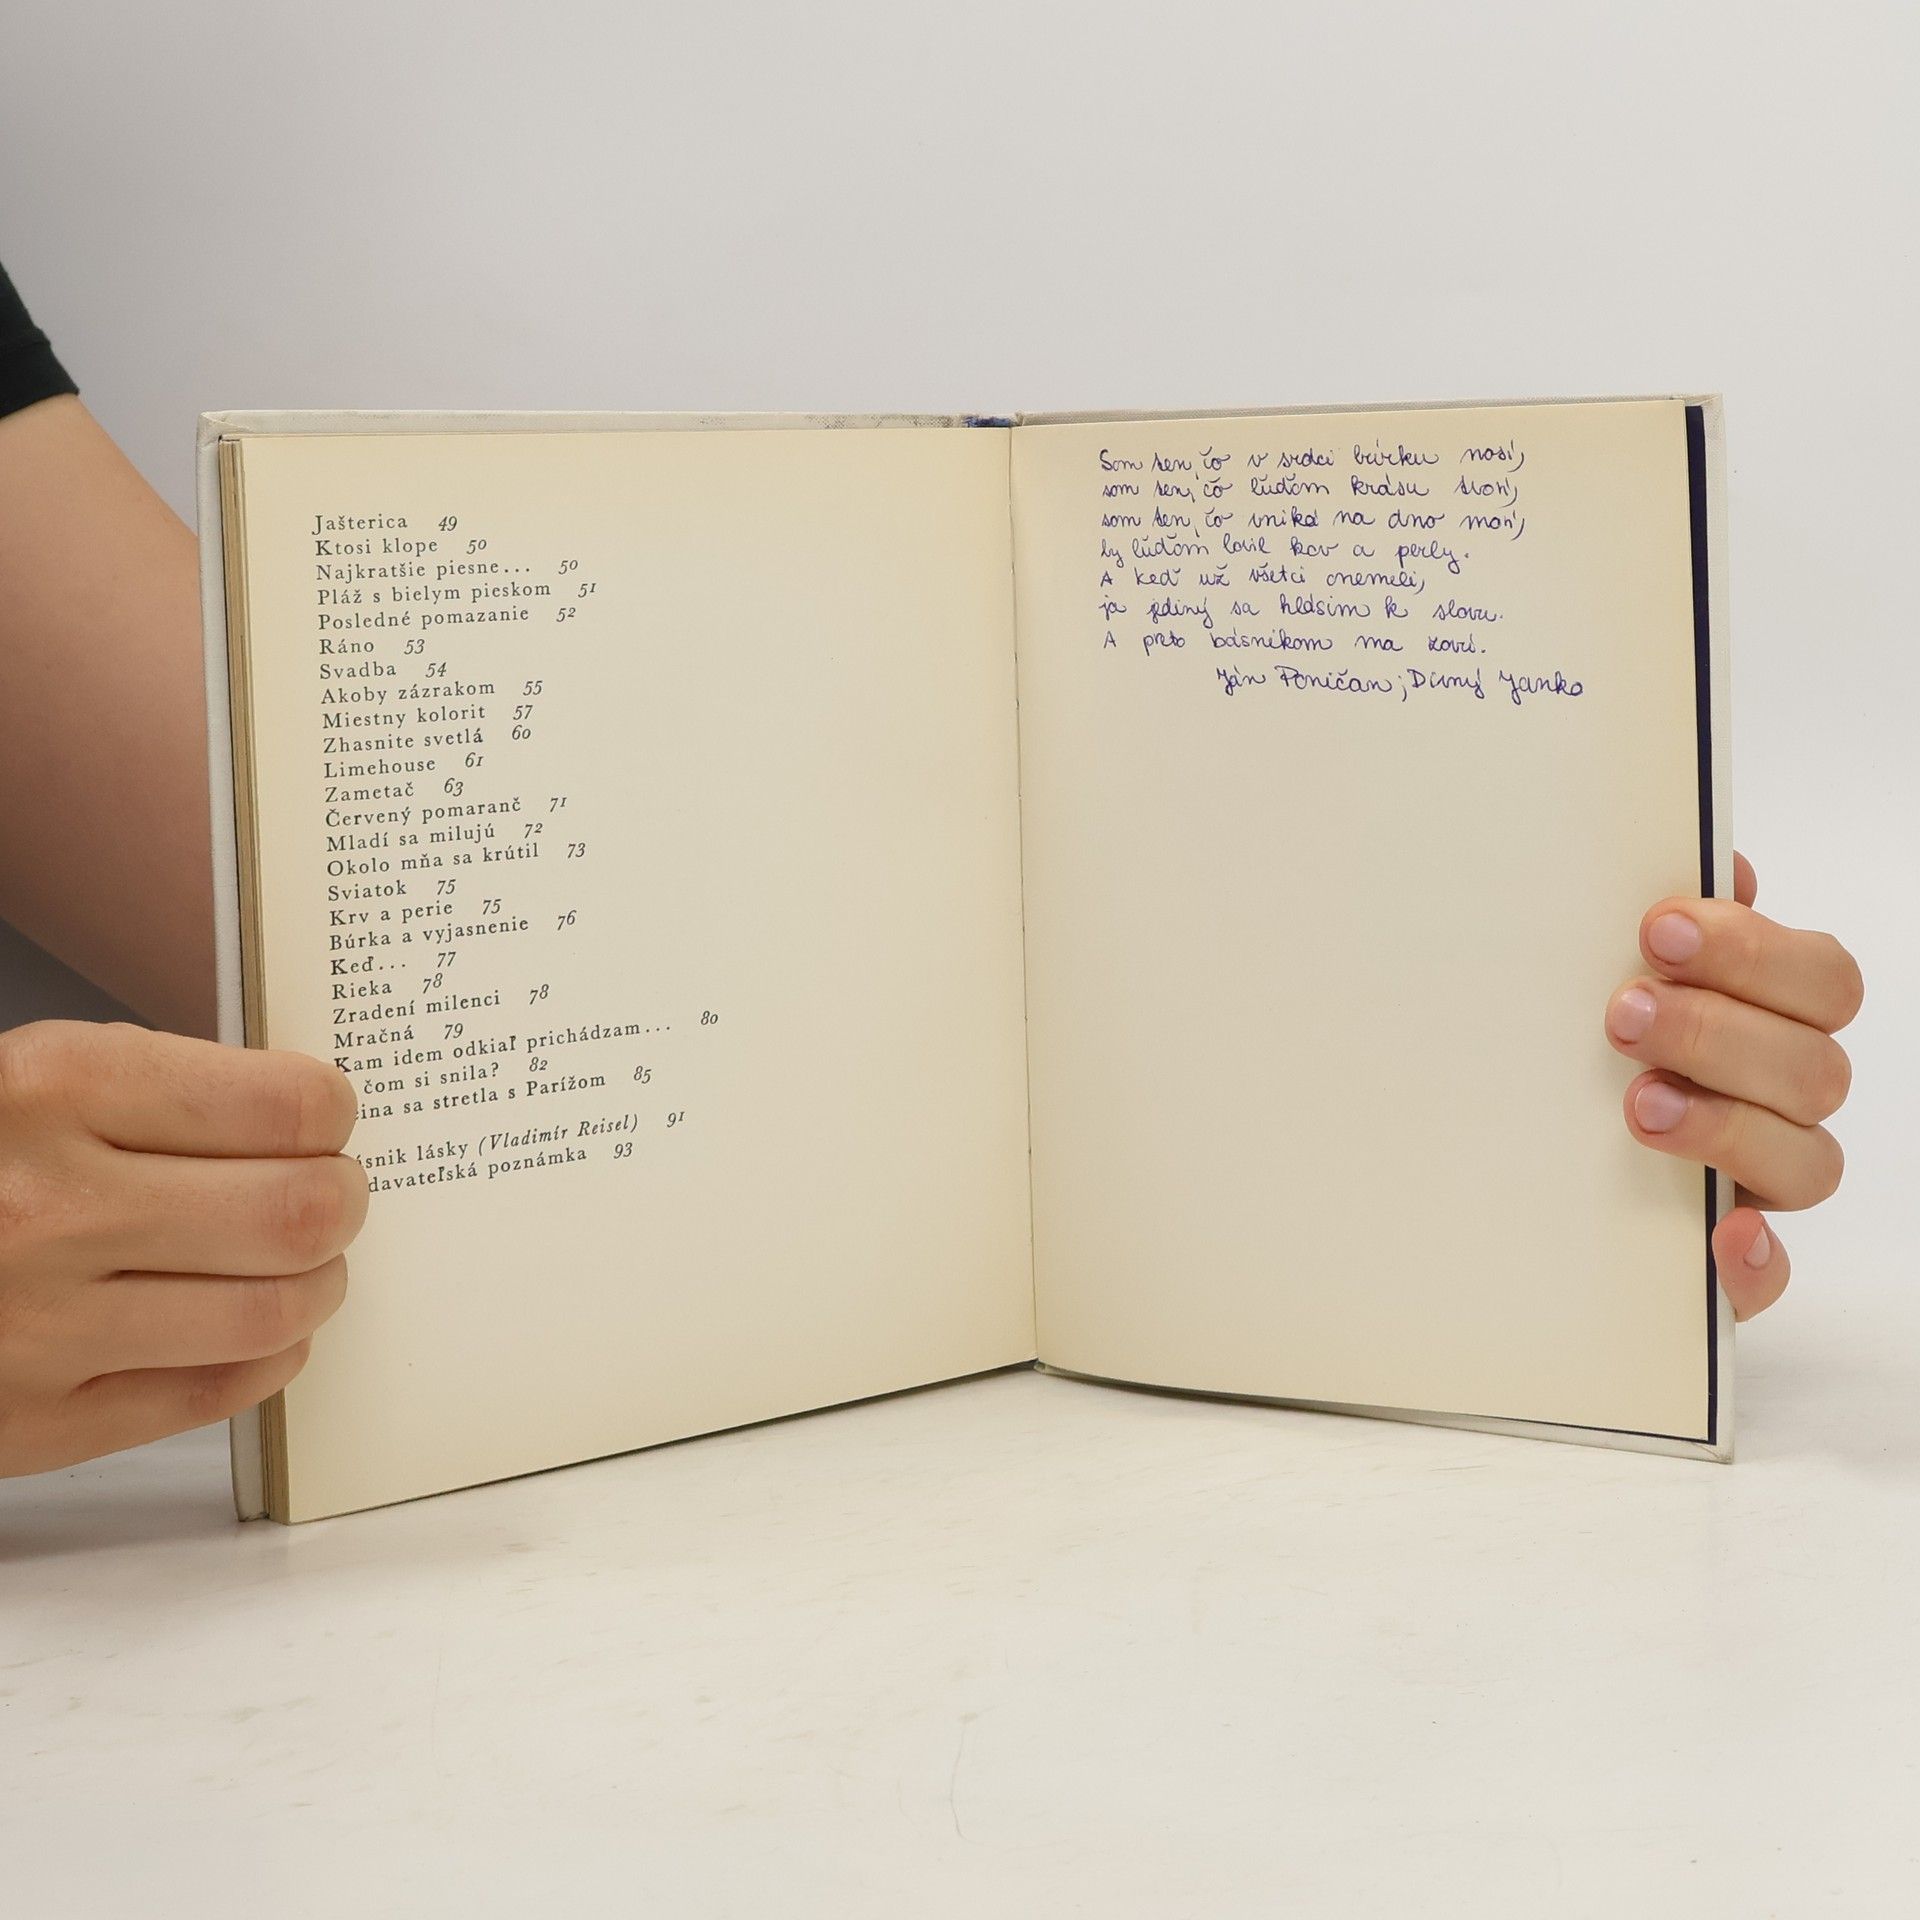 Jašterica 49
Ktosi klope 50
Najkratšie piesne... 50
Pláž s bielym pieskom 51
Posledné pomazanie 52
Ráno 53
Svadba 54
Akoby zázrakom 55
Miestny kolorit 57
Zhasnite svetlá 60
Limehouse 61
Zametač 63
Červený pomaranč 71
Mladí sa milujú 72
Okolo mňa sa krútil 73
Sviatok 75
Krv a perie 75
Búrka a vyjasnenie 76
Keď... 77
Rieka 78
Zradení milenci 78
Mračná 79
Kam idem odkiaľ prichádzam... 80
čom si snila? 82
sa stretla s Parížom 85
lásky (Vladimír Reisel) 91
poznámka 93
Som ten, čo v srdci búrku nosí,
som ten, čo ľuďom krásu tvorí,
som ten, čo vniká na dno morí,
by ľuďom lovil kov a perly.
A keď už všetci onemeli,
ja jediný sa hlásim k slovu.
A preto básnikom ma zovú.
Ján Poničan; Divný Janko